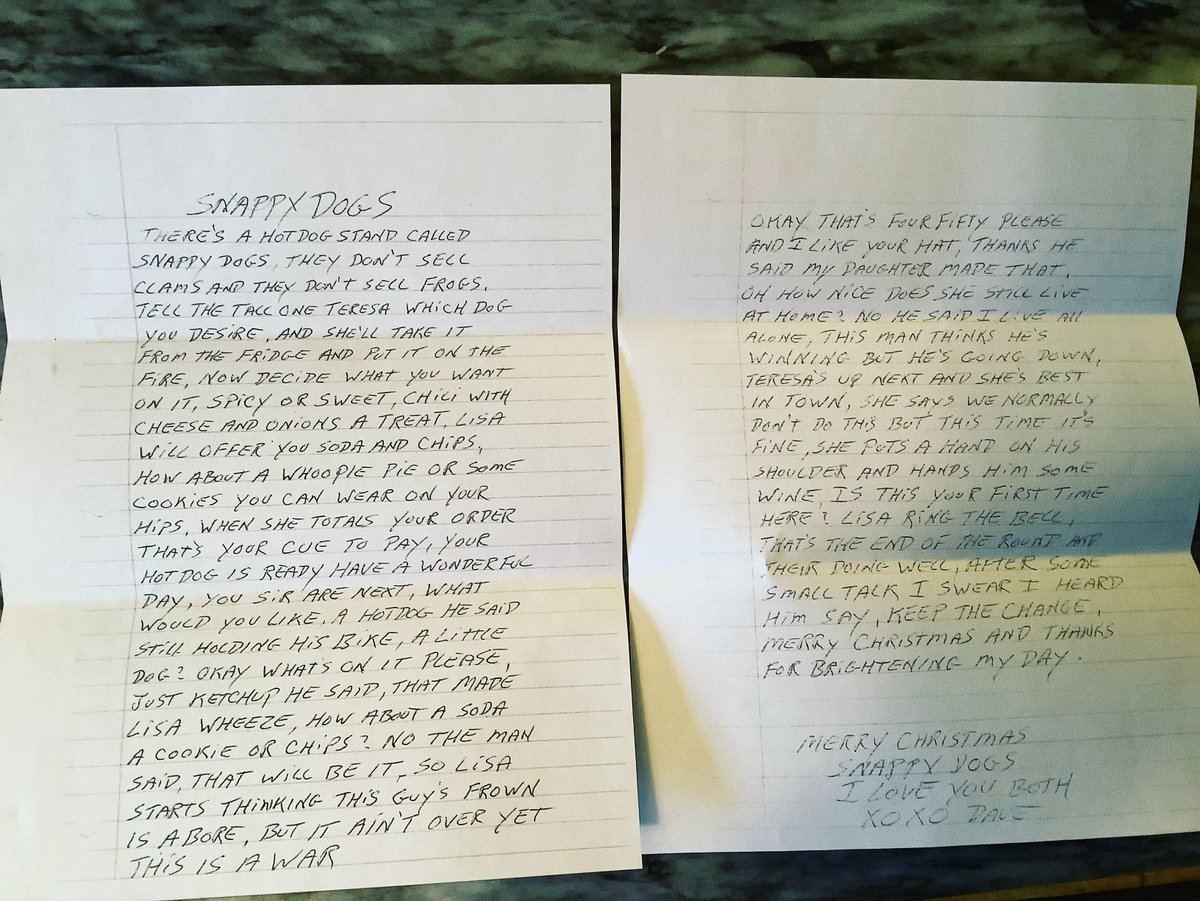 SNAPPY DOGS
THERE'S A HOTDOG STAND CALLED
SNAPPY DOGS, THEY DON'T SELL
CLAMS AND THEY DON'T SELL FROGS.
TELL THE TALL ONE TERESA WHICH DOG
YOU DESIRE, AND SHE'LL TAKE IT
FROM THE FRIDGE AND PUT IT ON THE
FIRE, NOW DECIDE WHAT YOU WANT
ON IT, SPICY OR SWEET, CHILI WITH
CHEESE AND ONIONS A TREAT, LISA
WILL OFFER YOU SODA AND CHIPS,
HOW ABOUT A WHOOPIE PIE OR SOME
COOKIES YOU CAN WEAR ON YOUR
HIPS, WHEN SHE TOTALS YOUR ORDER
THAT'S YOUR CUE TO PAY, YOUR
HOTDOG IS READY HAVE A WONDERFUL
DAY, YOU SIR ARE NEXT, WHAT
WOULD YOU LIKE, A HOTDOG HE SAID
STILL HOLDING HIS BIKE, A LITTLE
DOG? OKAY WHAT'S ON IT PLEASE,
JUST KETCHUP HE SAID, THAT MADE
LISA WHEEZE, HOW ABOUT A SODA
A COOKIE OR CHIPS? NO THE MAN
SAID, THAT WILL BE IT, SO LISA
STARTS THINKING THIS GUY'S FROWN
IS A BORE, BUT IT AIN'T OVER YET
THIS IS A WAR
OKAY THAT'S FOUR FIFTY PLEASE
AND I LIKE YOUR HAT, THANKS HE
SAID MY DAUGHTER MADE THAT,
OH HOW NICE DOES SHE STILL LIVE
AT HOME? NO HE SAID I LIVE All
ALONE, THIS MAN THINKS HE'S
WINNING BUT HE'S GOING DOWN,
TERESA'S UP NEXT AND SHE'S BEST
IN TOWN, SHE SAYS WE NORMALLY
DON'T DO THIS BUT THIS TIME IT'S
FINE, SHE PUTS A HAND ON HIS
SHOULDER AND HANDS HIM SOME
WINE, IS THIS YOUR FIRST TIME
HERE? LISA RING THE BELL,
THAT'S THE END OF THE ROUND AND
THEIR DOING WELL, AFTER SOME
SMALL TALK I SWEAR I HEARD
HIM SAY, KEEP THE CHANGE,
MERRY CHRISTMAS AND THANKS
FOR BRIGHTENING MY DAY.
MERRY CHRISTMAS
SNAPPY DOGS
I LOVE YOU BOTH
XOXO DAVE